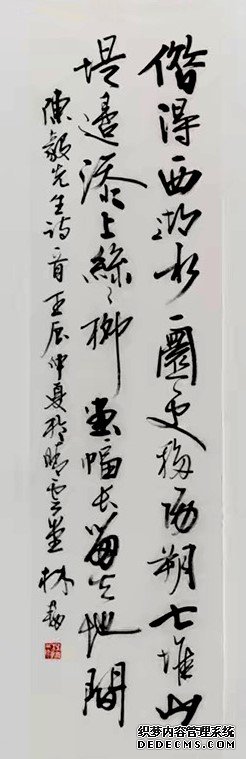 借得西湖水一圜更移陽朔七堆山
堤邊添上絲絲柳畫幅長留天地間
陳毅先生诗一首壬辰仲夏於晴雲堂林
织梦内容管理系统
DEDECMS.COM